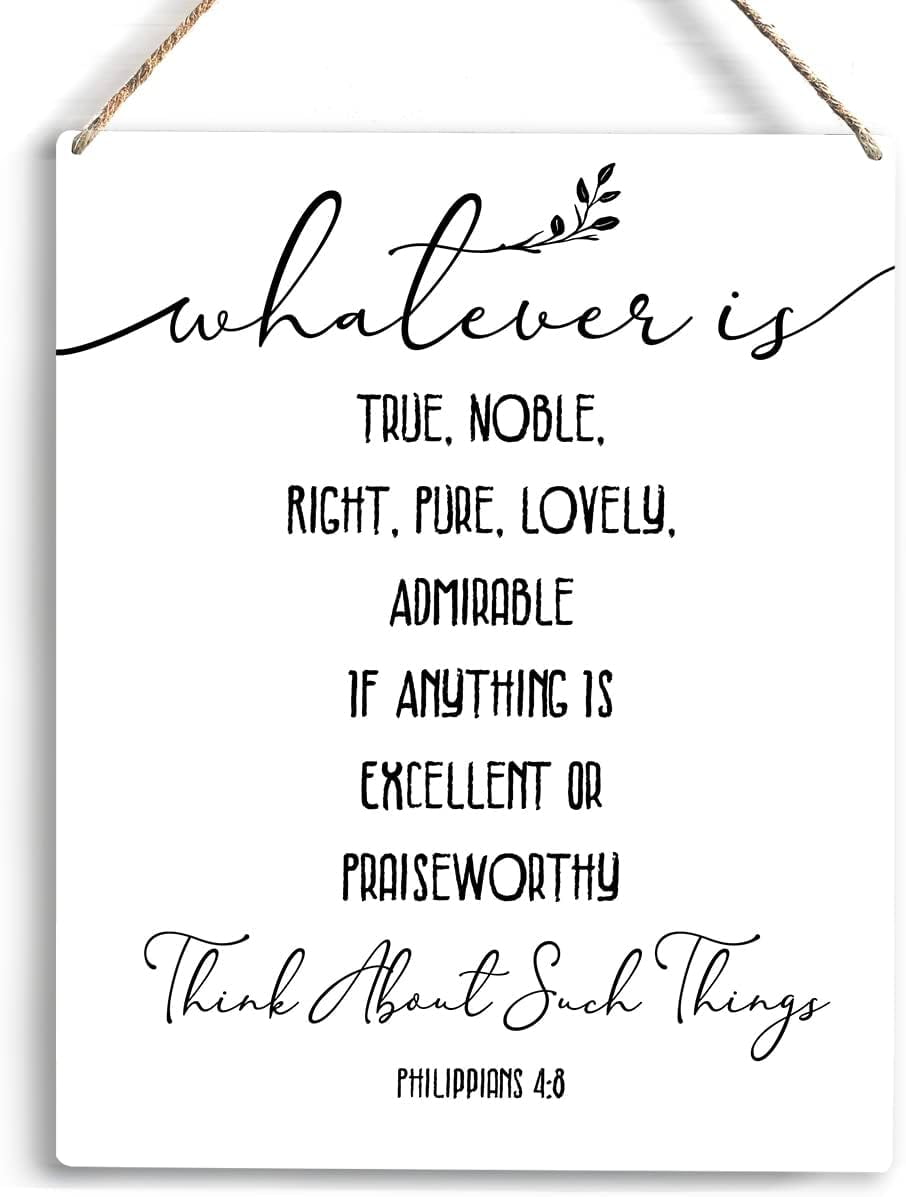 whatever is
TRUE, NOBLE,
RIGHT, PURE, LOVELY,
ADMIRABLE
IF ANYTHING IS
EXCELLENT OR
PRAISEWORTHY
Think About Such Things
PHILIPPIANS 4:8